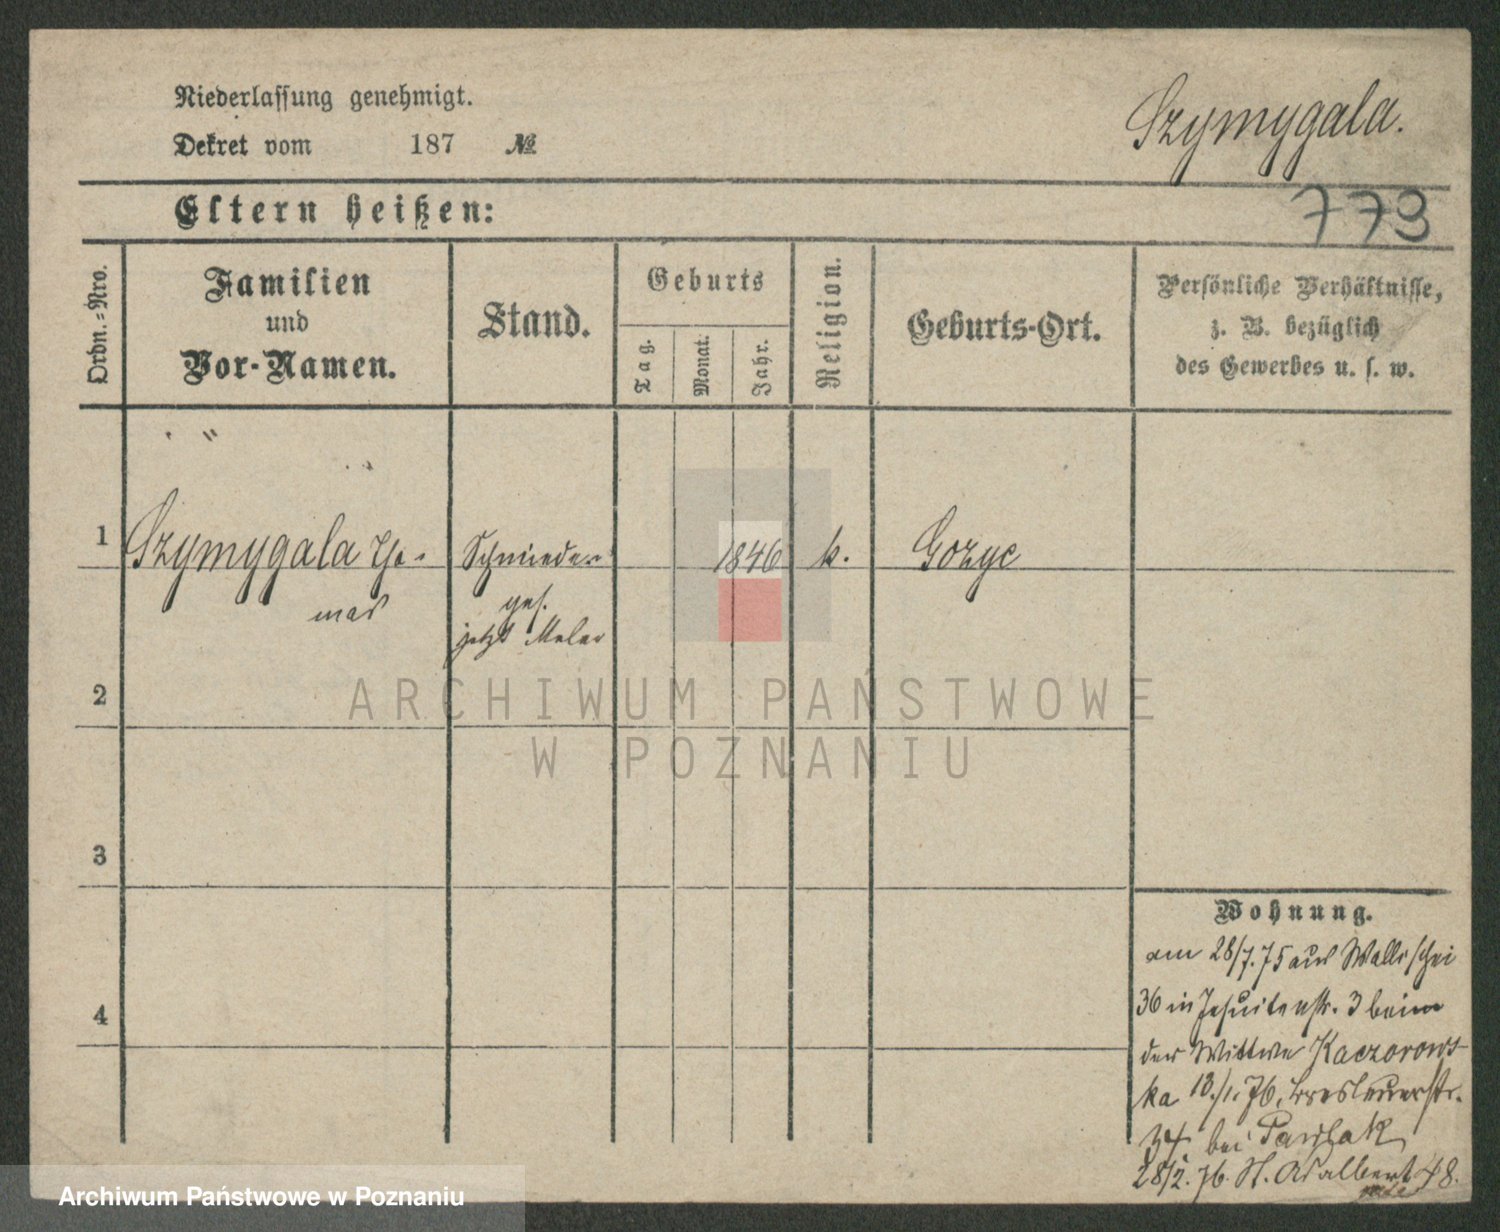 Niederlassung genehmigt.
Szymygala.
Dekret vom 187 №
Eltern heißen:
779
Ordn.-Nro.
Familien
und
Vor-Namen.
Stand.
Geburts
Tag.
Monat.
Jahr.
Religion.
Geburts-Ort.
Persönliche Verhältnisse,
z. B. bezüglich
des Gewerbes u. s. w.
1
Szymygala Tho-
mas
Schmiede
ges.
jetzt Maler
1846
k.
Gozyc
2
3
4
Wohnung.
am 28/7.75 aus Wallischei
36 in Jesuitenstr. 3 beim
der Wittwe Kaczorows-
ka 13./1. 76. Breslauerstr.
34 bei Pawlak
28/2. 76. St. Adalbert 48.
ARCHIWUM PAŃSTWOWE
W POZNANIU
Archiwum Państwowe w Poznaniu